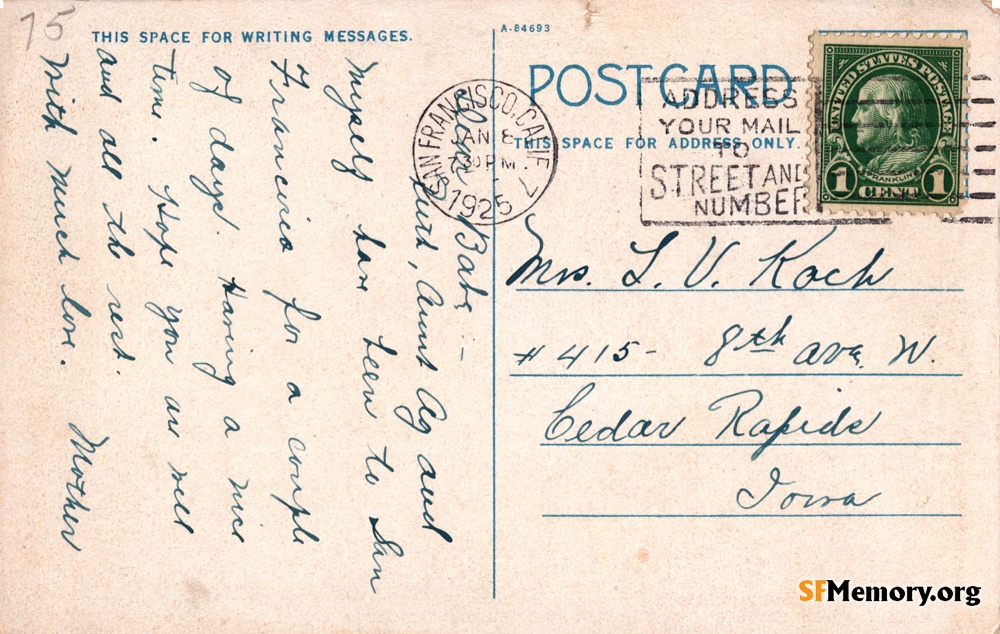 75
THIS SPACE FOR WRITING MESSAGES.
Dear Babe –
Burt, Aunt Ag and
Myself have been to San
Francisco for a couple
of days. Having a nice
time. Hope you are well
and all the rest.
With much love. Mother
A-84693
POSTCARD
THIS SPACE FOR ADDRESS ONLY.
SAN FRANCISCO, CALIF.
JAN 8
730 PM
1925
ADDRESS
YOUR MAIL
TO
STREET AND
NUMBER
UNITED STATES POSTAGE
FRANKLIN
1 CENT 1
Mrs. L. V. Koch
#415- 8th ave. W.
Cedar Rapids
Iowa
SFMemory.org